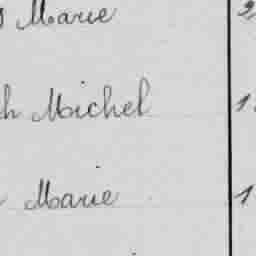 Marie
h Michel 1
Marie 1